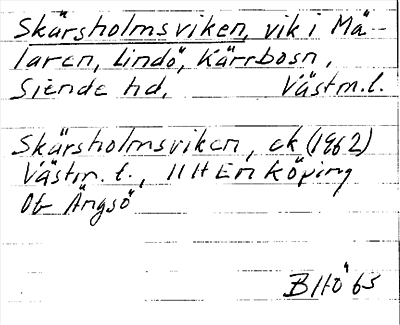 Skärsholmsviken, vik i Mä-
laren, Lindö, Kärrbosn,
Siende hd, Västm.l.
Skärsholmsviken, ek (1962)
Västm. l., 11H Enköping
Of Ängsö
BHö 65